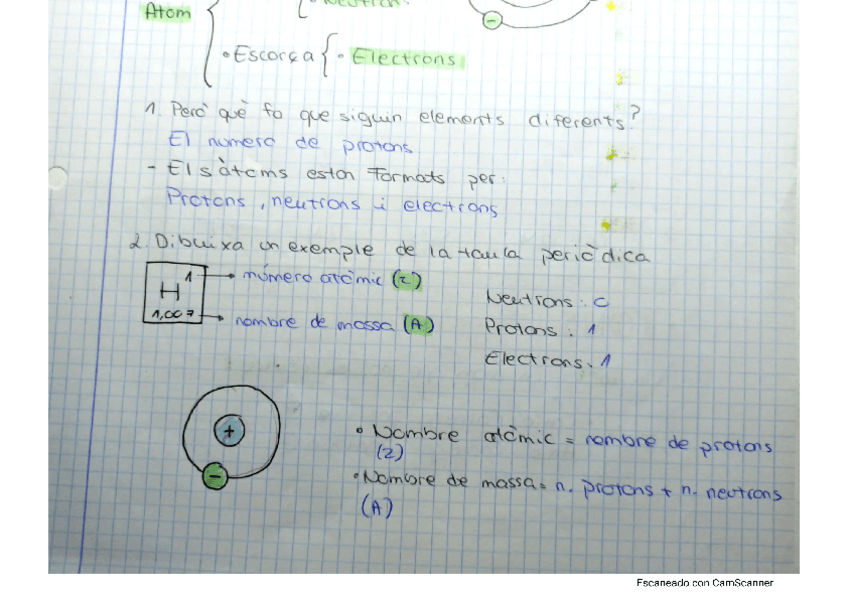 Neutrons
Atom
-
• Escorça { • Electrons
1. Però què fa que siguin elements diferents?
El numero de protons.
- Els àtoms estan formats per:
Protons, neutrons i electrons
2. Dibuixa un exemple de la taula periòdica
1 → número atòmic (z)
H
1,007 → nombre de massa (A)
Neutrons: 0
Protons: 1
Electrons: 1
+
-
• Nombre atòmic = nombre de protons
(z)
• Nombre de massa = n. protons + n. neutrons
(A)
Escaneado con CamScanner